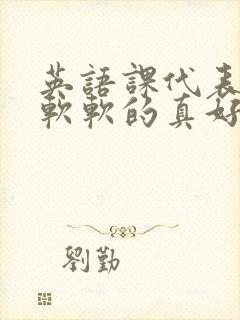 英語課代表
軟軟的真好
劉勤